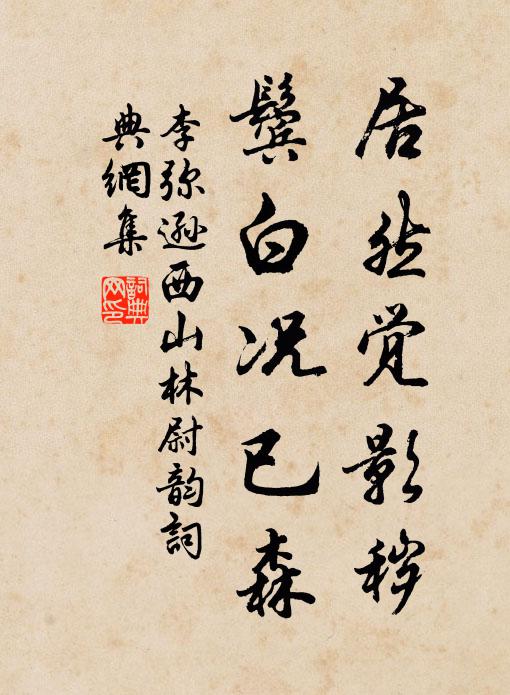 居然觉影秽
鬓白况已森
李弥逊西山林尉韵詞
典網集
詞典
网印